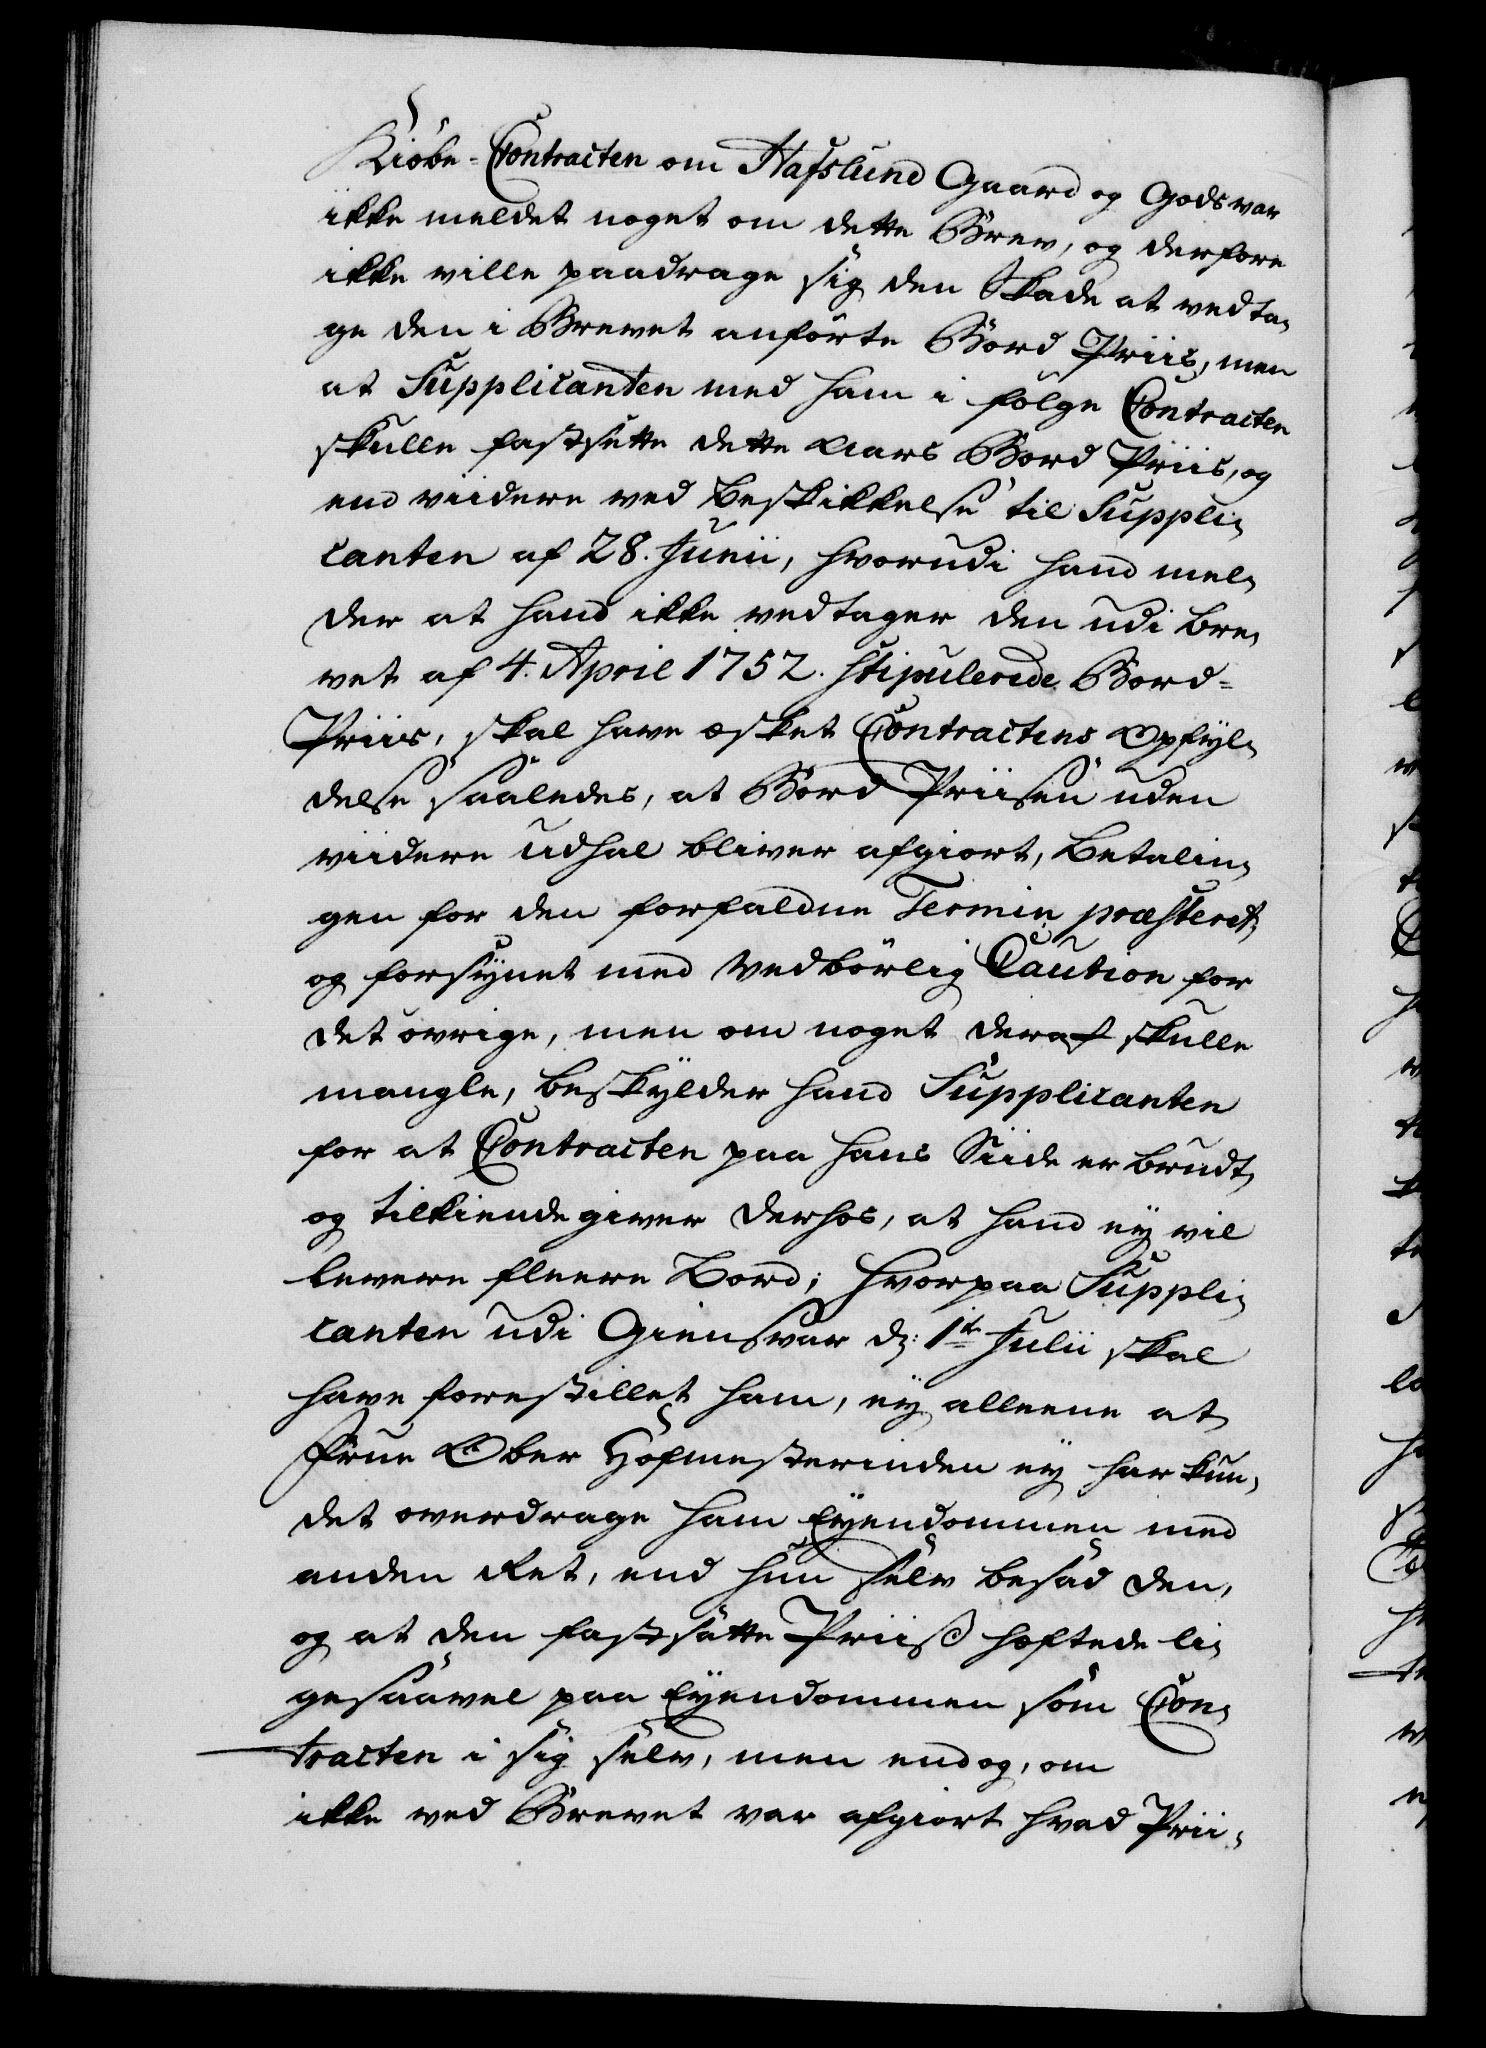 Kiøbe-Contracten om Hafslund Gaard og Gods var
ikke meldet noget om dette Brev, og derfore
ikke ville paadrage sig den Skade at vedta-
ge den i Brevet anførte Bord Priis, men
at Supplicanten med ham i følge Contracten
skulle fastsætte dette Aars Bord Priis, og
end viidere ved Beskikkelse til Suppli-
canten af 28. Junii, hvorudi hand mel-
der at hand ikke vedtager den udi Bre-
vet af 4. April 1752. stipulerede Bord-
Priis, skal have æsket Contractens Opfyl-
delse saaledes, at Bord Priisen uden
viidere udhal bliver afgiort, Betalin-
gen for den forfaldne Termin præsteret,
og forsynet med vedbørlig Caution for
det øvrige, men om noget deraf skulle
mangle, beskylder hand Supplicanten
for at Contracten paa hans Siide er brudt,
og tilkiende giver derhos, at hand ey vil
levere fleere Bord; hvorpaa Suppli-
canten udi Giensvar d: 1te Julii skal
have forestillet ham, ey alleene at
Frue Ober Hofmesterinden ey har kun-
det overdrage ham Eyendommen med
anden Ret, end hun selv besad den,
og at den fastsatte Priis hæftede li-
gesaavel paa Eyendommen som Con-
tracten i sig selv, men endog, om
ikke ved Brevet var afgiort hvad Prii-